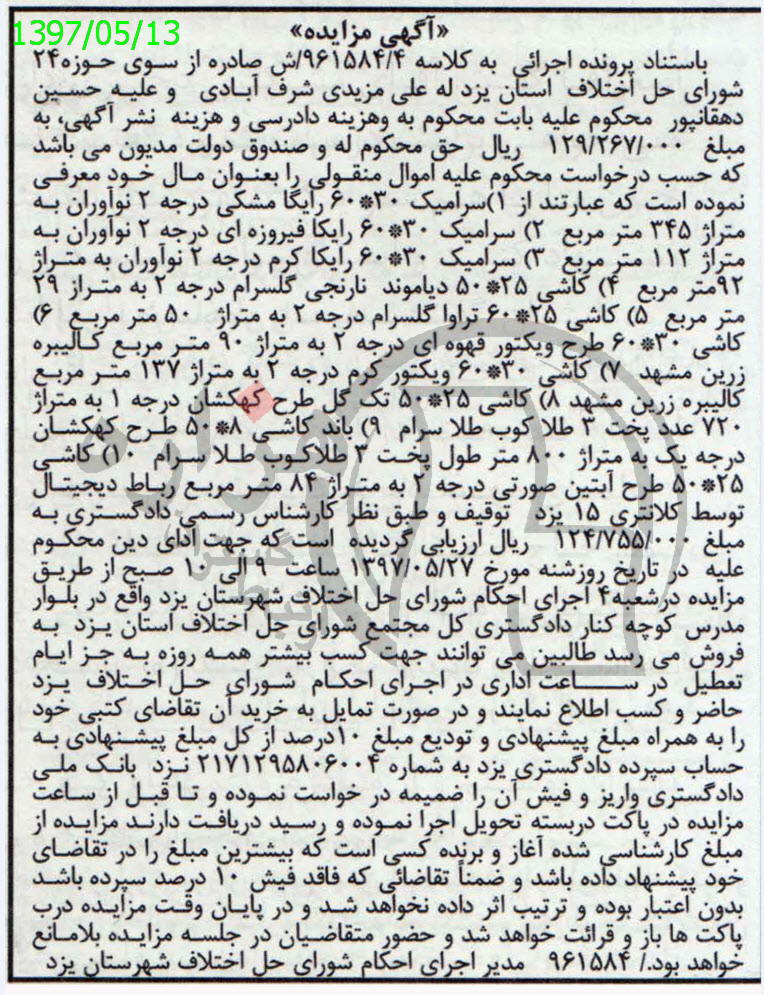 1397/05/13
«آگهی مزایده»
باستناد پرونده اجرائی به کلاسه ۹۶۱۵۸۴/۴/ش صادره از سوی حوزه۲۴
شورای حل اختلاف استان یزد له علی مزیدی شرف آبادی و علیه حسین
دهقانپور محکوم علیه بابت محکوم به وهزینه دادرسی و هزینه نشر آگهی، به
مبلغ ۱۲۹/۲۶۷/۰۰۰ ریال حق محکوم له و صندوق دولت مدیون می باشد
که حسب درخواست محکوم علیه اموال منقولی را بعنوان مال خود معرفی
نموده است که عبارتند از ۱)سرامیک ۳۰*۶۰ رایگا مشکی درجه ۲ نوآوران به
متراژ ۳۴۵ متر مربع ۲) سرامیک ۳۰*۶۰ رایکا فیروزه ای درجه ۲ نوآوران به
متراژ ۱۱۲ متر مربع ۳) سرامیک ۳۰*۶۰ رایکا کرم درجه ۲ نوآوران به متراژ
۹۲متر مربع ۴) کاشی ۲۵*۵۰ دیاموند نارنجی گلسرام درجه ۲ به متراژ ۲۹
متر مربع ۵) کاشی ۲۵*۶۰ تراوا گلسرام درجه ۲ به متراژ ۵۰ متر مربع ۶)
کاشی ۳۰*۶۰ طرح ویکتور قهوه ای درجه ۲ به متراژ ۹۰ متر مربع کالیبره
زرین مشهد ۷) کاشی ۳۰*۶۰ ویکتور کرم درجه ۲ به متراژ ۱۳۷ متر مربع
کالیبره زرین مشهد ۸) کاشی ۲۵*۵۰ تک گل طرح کهکشان درجه ۱ به متراژ
۷۲۰ عدد پخت ۳ طلا کوب طلا سرام ۹) باند کاشی ۸*۵۰ طرح کهکشان
درجه یک به متراژ ۸۰۰ متر طول پخت ۳ طلاکوب طلا سرام ۱۰) کاشی
۲۵*۵۰ طرح آبتین صورتی درجه ۲ به متراژ ۸۴ متر مربع رباط دیجیتال
توسط کلانتری ۱۵ یزد توقیف و طبق نظر کارشناس رسمی دادگستری به
مبلغ ۱۲۴/۷۵۵/۰۰۰ ریال ارزیابی گردیده است که جهت ادای دین محکوم
علیه در تاریخ روزشنبه مورخ ۱۳۹۷/۰۵/۲۷ ساعت ۹ الی ۱۰ صبح از طریق
مزایده درشعبه۴ اجرای احکام شورای حل اختلاف شهرستان یزد واقع در بلوار
مدرس کوچه کنار دادگستری کل مجتمع شورای حل اختلاف استان یزد به
فروش می رسد طالبین می توانند جهت کسب بیشتر همه روزه به جز ایام
تعطیل در ساعت اداری در اجرای احکام شورای حل اختلاف یزد
حاضر و کسب اطلاع نمایند و در صورت تمایل به خرید آن تقاضای کتبی خود
را به همراه مبلغ پیشنهادی و تودیع مبلغ ۱۰درصد از کل مبلغ پیشنهادی به
حساب سپرده دادگستری یزد به شماره ۲۱۷۱۲۹۵۸۰۶۰۰۴ نزد بانک ملی
دادگستری واریز و فیش آن را ضمیمه در خواست نموده و تا قبل از ساعت
مزایده در پاکت دربسته تحویل اجرا نموده و رسید دریافت دارند مزایده از
مبلغ کارشناسی شده آغاز و برنده کسی است که بیشترین مبلغ را در تقاضای
خود پیشنهاد داده باشد و ضمناً تقاضائی که فاقد فیش ۱۰ درصد سپرده باشد
بدون اعتبار بوده و ترتیب اثر داده نخواهد شد و در پایان وقت مزایده درب
پاکت ها باز و قرائت خواهد شد و حضور متقاضیان در جلسه مزایده بلامانع
خواهد بود./ ۹۶۱۵۸۴ مدیر اجرای احکام شورای حل اختلاف شهرستان یزد